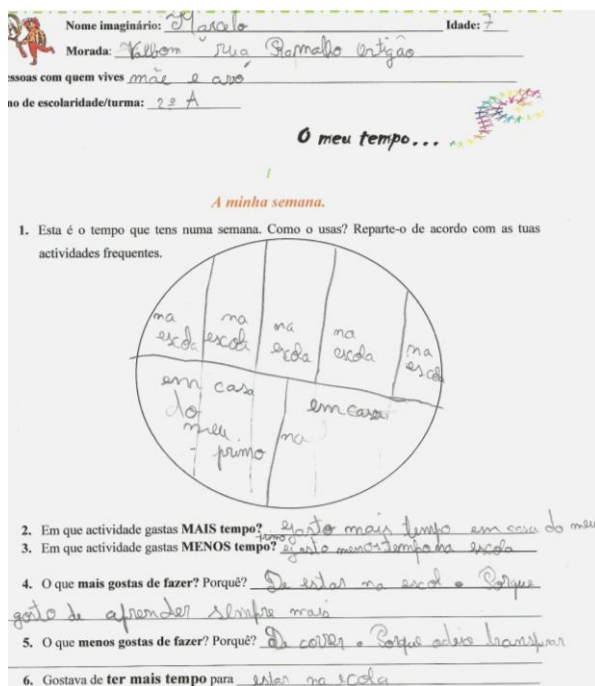 Nome imaginário: Marcelo Idade: 7
Morada: Valbom rua Ramalho Ortigão
essoas com quem vives mãe e avó
no de escolaridade/turma: 2º A
O meu tempo...
1
A minha semana.
1. Esta é o tempo que tens numa semana. Como o usas? Reparte-o de acordo com as tuas
actividades frequentes.
na escola
na escola
na escola
na escola
na escola
em casa do meu primo
na em casa
2. Em que actividade gastas MAIS tempo? gasto mais tempo em casa do meu
primo
3. Em que actividade gastas MENOS tempo? gasto menos tempo na escola
4. O que mais gostas de fazer? Porquê? De estar na escol. Porque
gosto de aprender sempre mais
5. O que menos gostas de fazer? Porquê? De correr. Porque odeio transpirar
6. Gostava de ter mais tempo para estar na escola